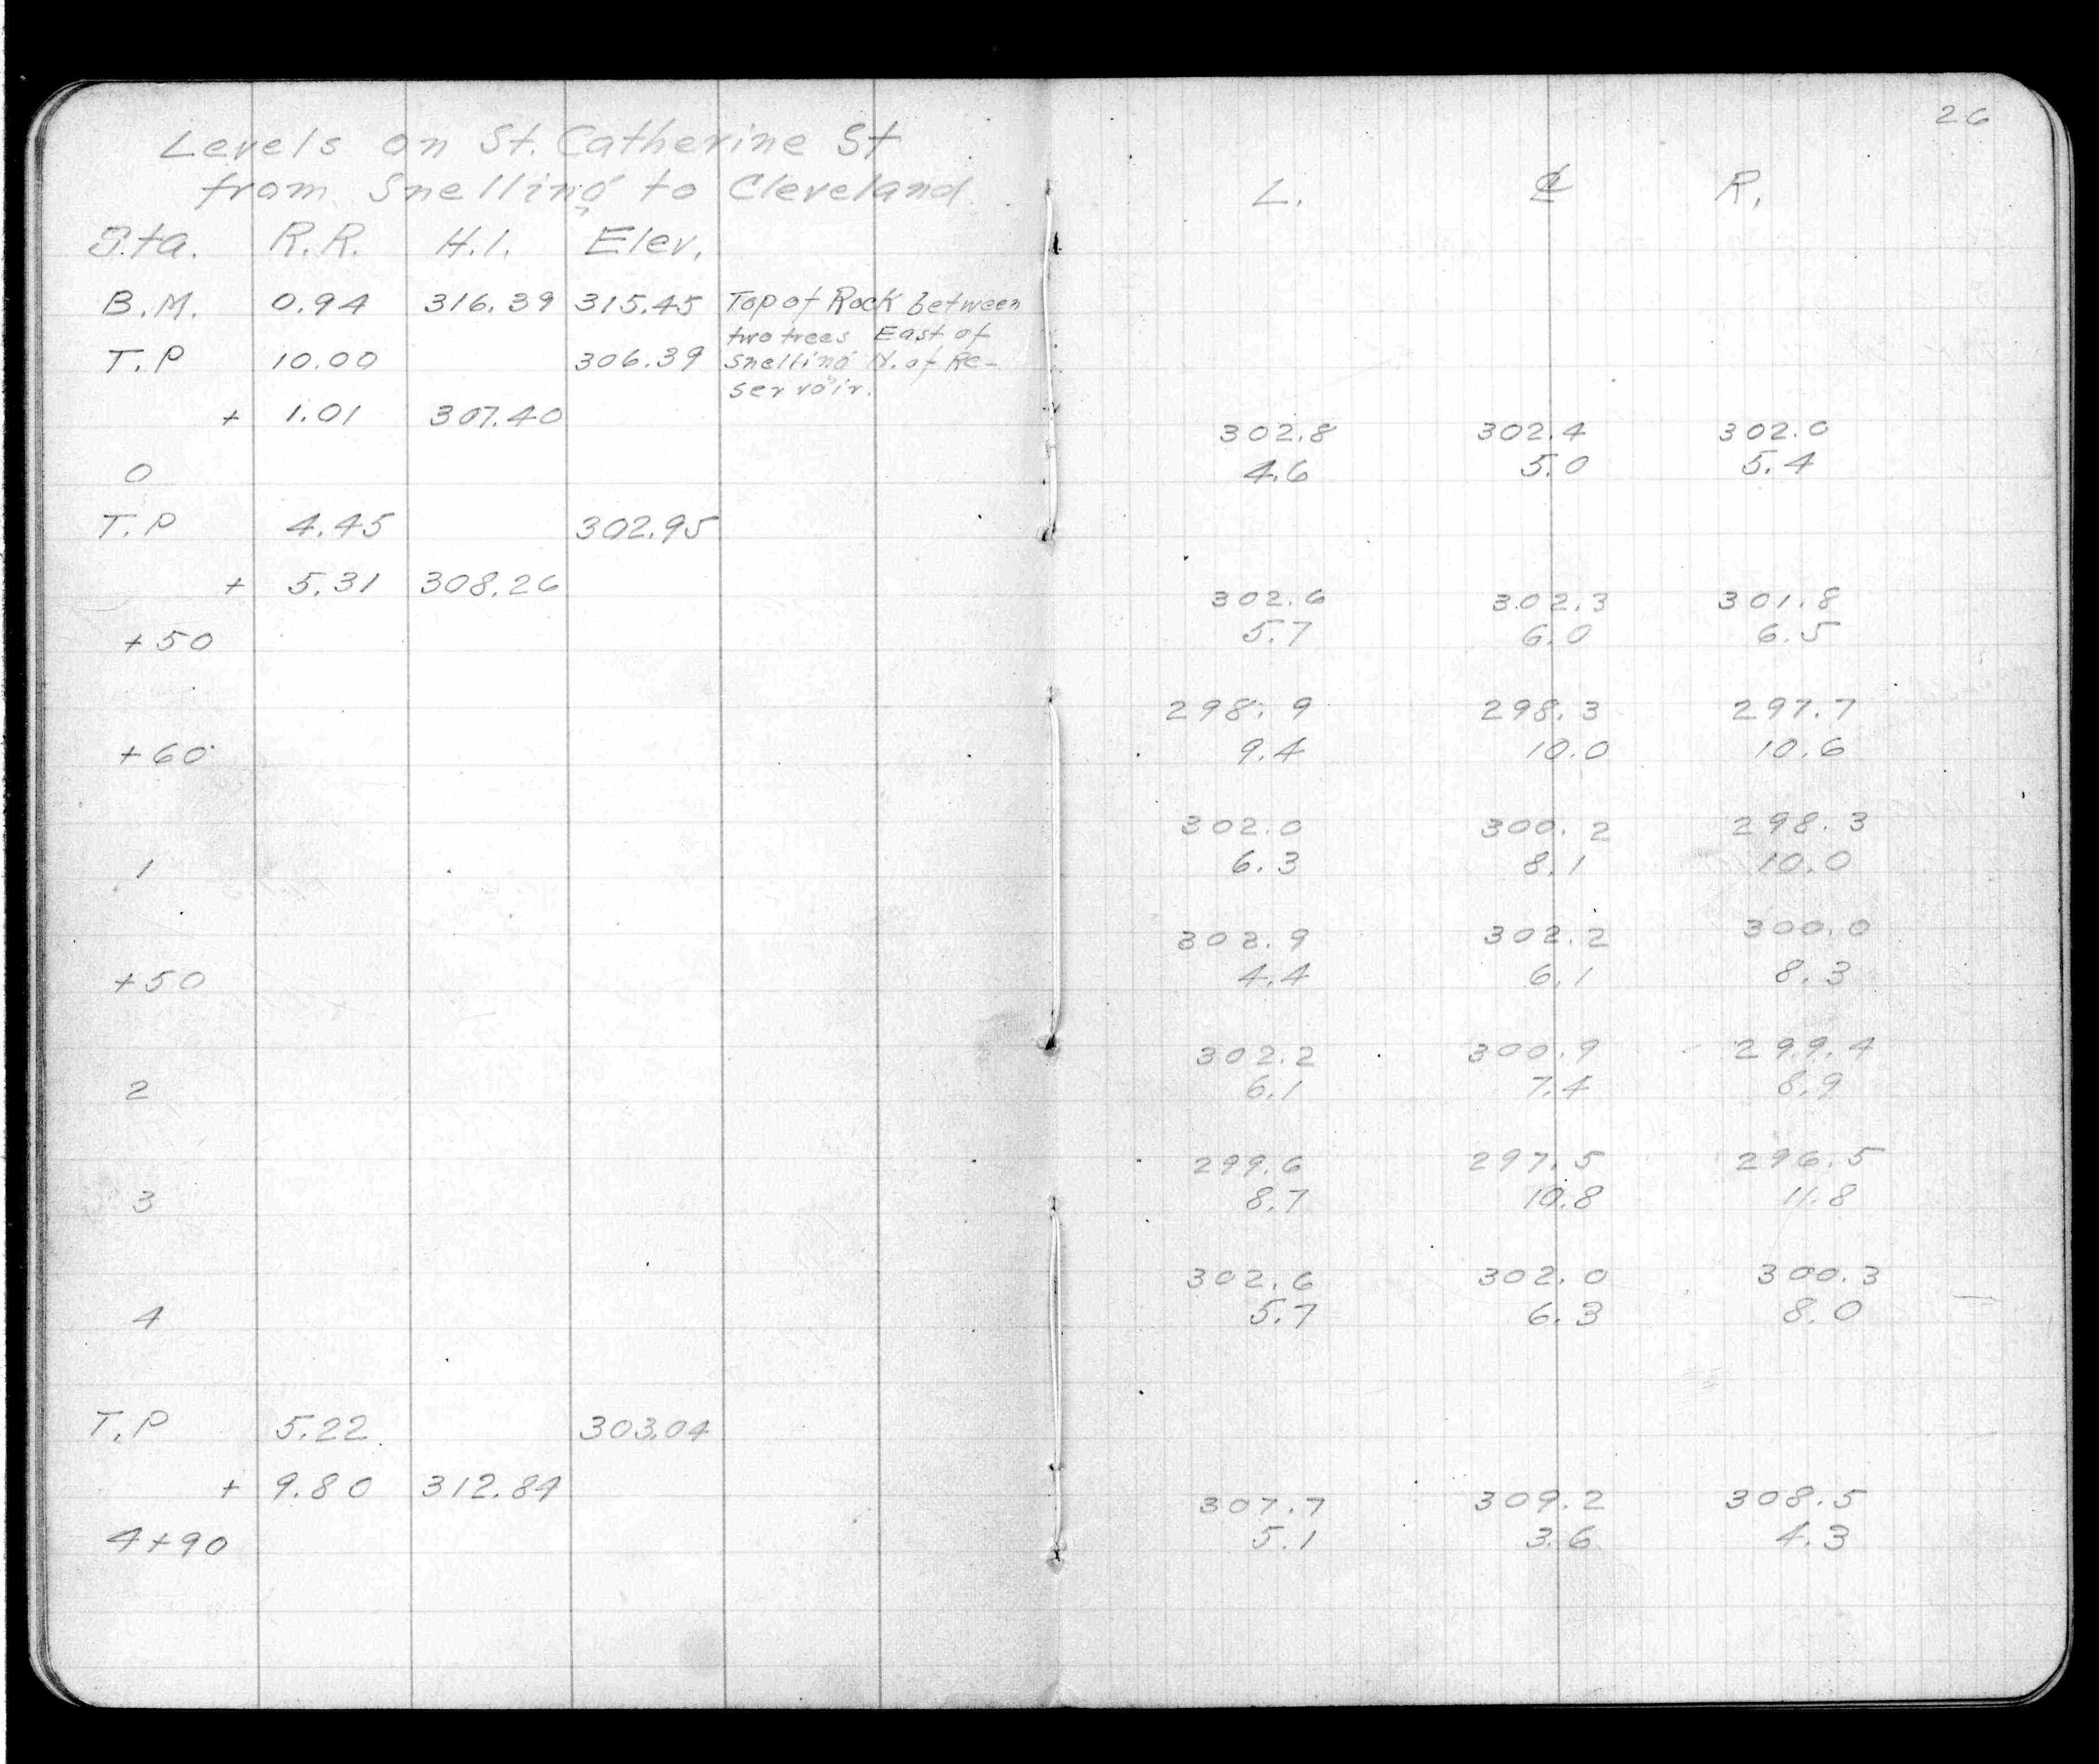 Levels on St. Catherine St
from Snelling to Cleveland
Sta. R.R. H.I. Elev.
B.M. 0.94 316.39 315.45 Top of Rock between
two trees East of
T.P 10.00 306.39 Snelling N. of Re-
servoir.
+ 1.01 307.40
0
T.P 4.45 302.95
+ 5.31 308.26
+50
+60
1
+50
2
3
4
T.P 5.22 303.04
+ 9.80 312.84
4+90
26
L. ℄ R.
302.8 302.4 302.0
4.6 5.0 5.4
302.6 302.3 301.8
5.7 6.0 6.5
298.9 298.3 297.7
9.4 10.0 10.6
302.0 300.2 298.3
6.3 8.1 10.0
302.9 302.2 300.0
4.4 6.1 8.3
302.2 300.9 299.4
6.1 7.4 8.9
299.6 297.5 296.5
8.7 10.8 11.8
302.6 302.0 300.3
5.7 6.3 8.0
307.7 309.2 308.5
5.1 3.6 4.3